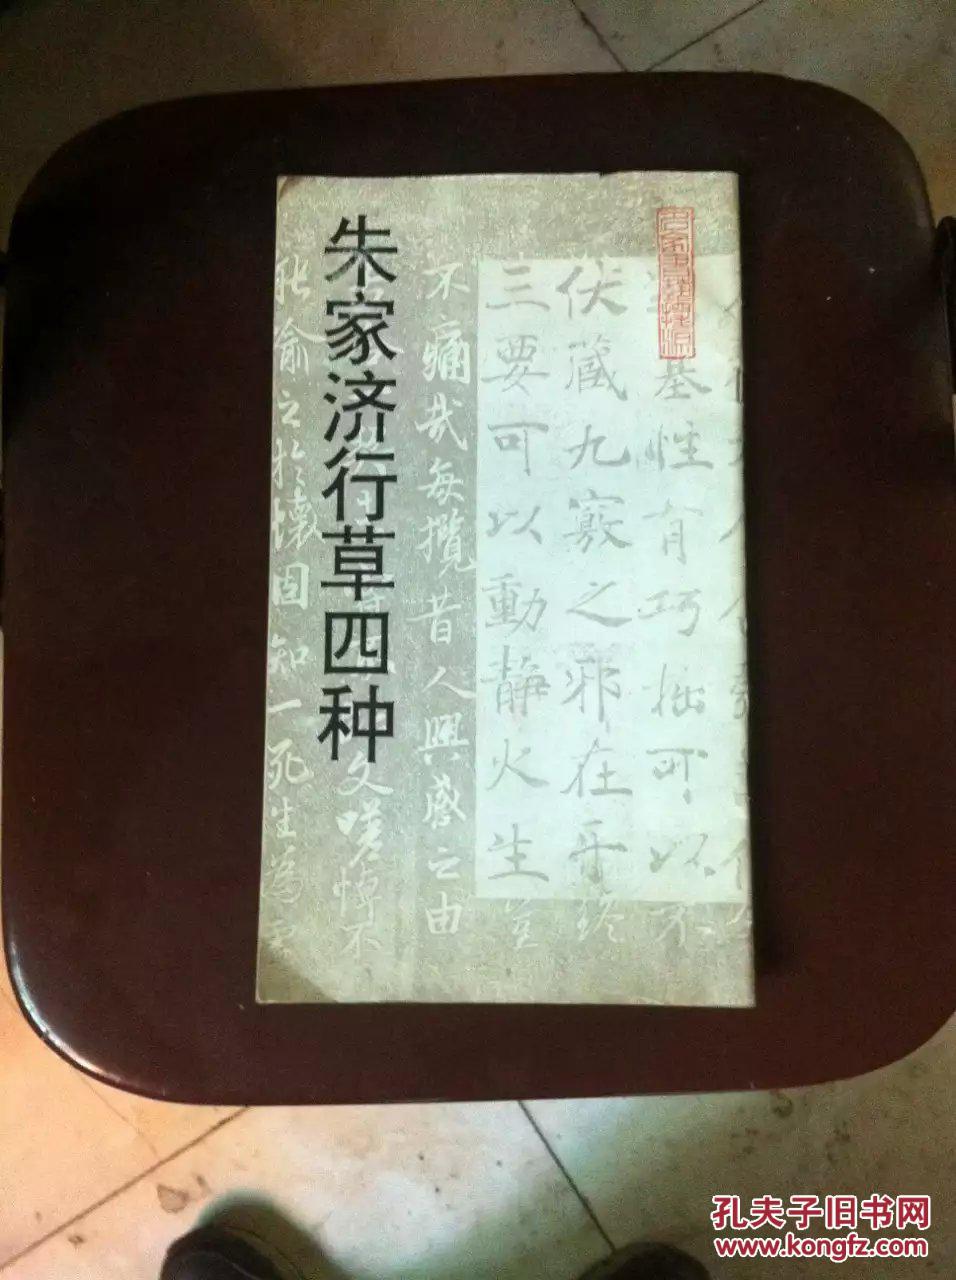 朱家济行草四种
基性有巧拙可以
伏藏九竅之邪在乎
三要可以動靜火生
不痛哉每攬昔人興感之由
文嗟悼不
喻之於懷固知一死生為
孔夫子旧书网
www.kongfz.com